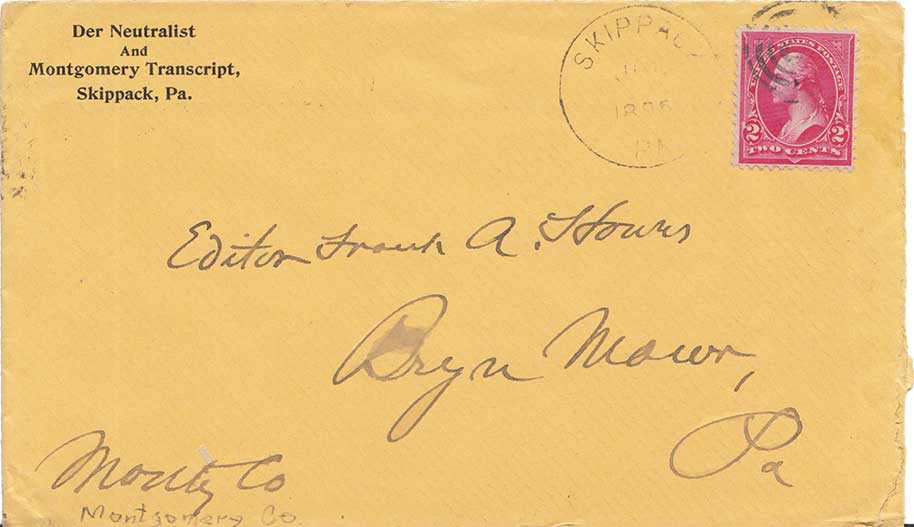 Der Neutralist
And
Montgomery Transcript,
Skippack, Pa.
SKIPPACK
1895
PM
UNITED STATES POSTAGE
2 2
TWO CENTS
Editor Frank A.
Bryn Mawr,
Pa
Montg Co
Montgomery Co.